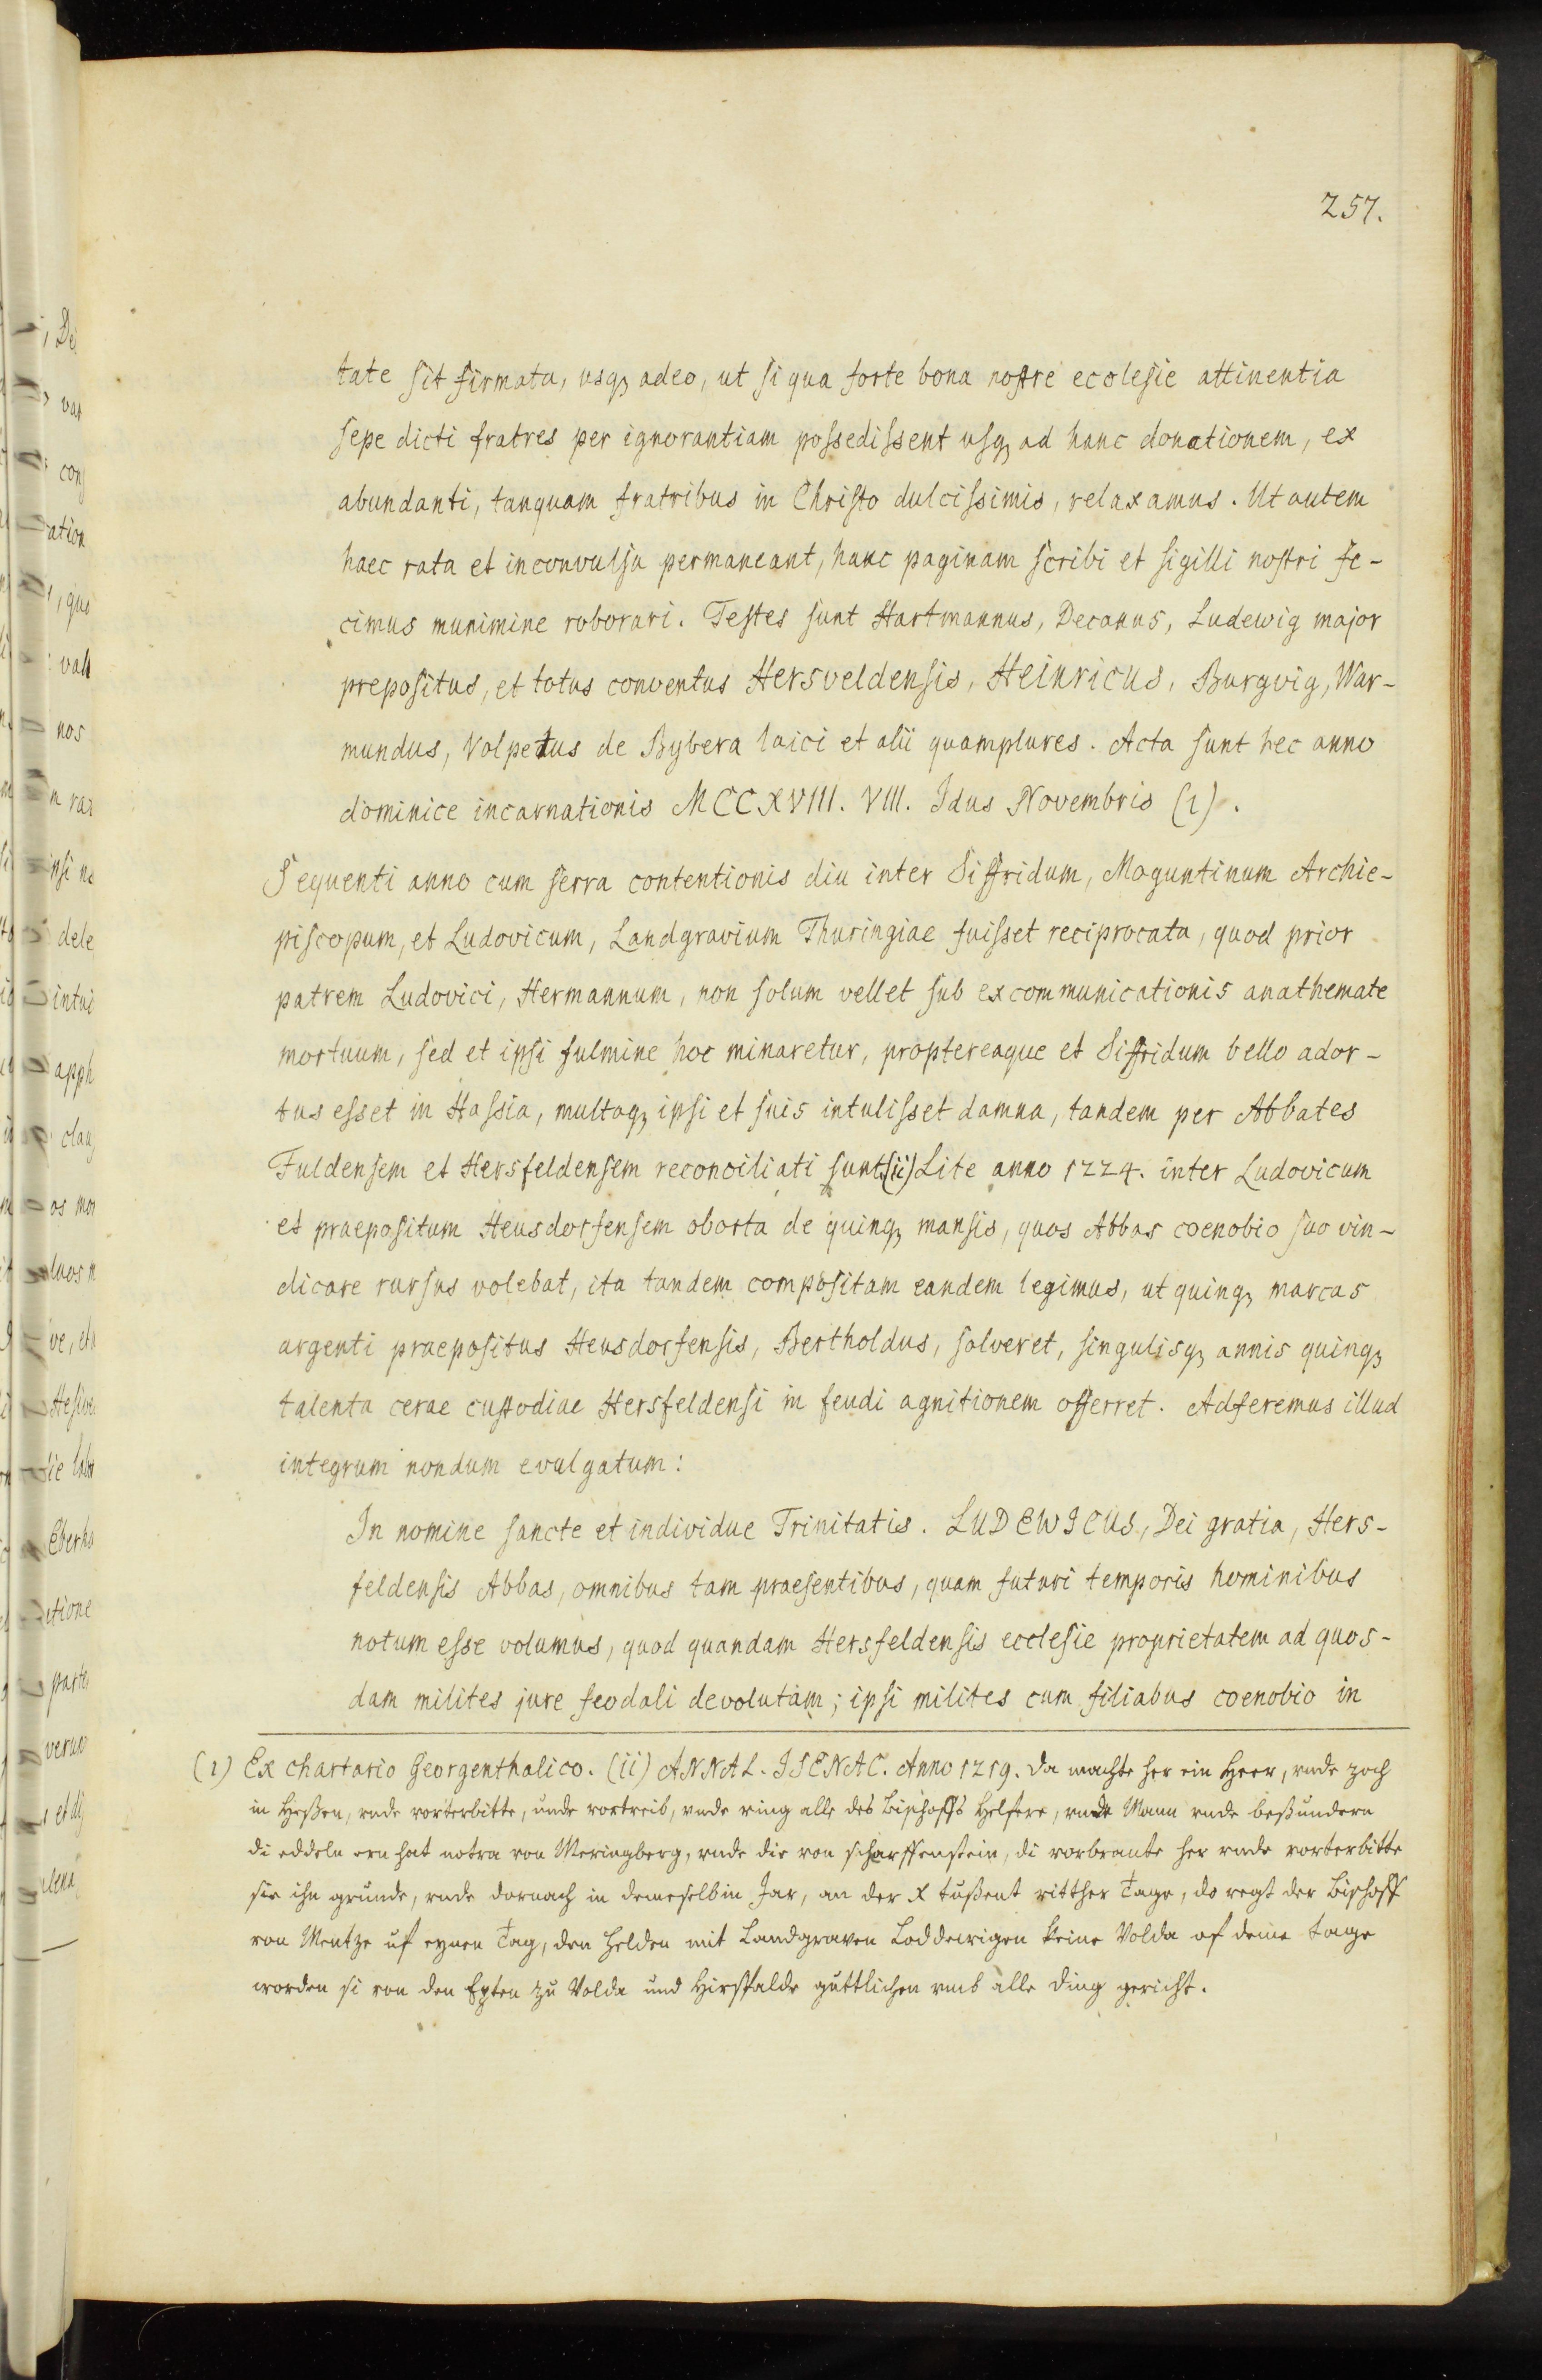 257.
tate sit firmata, usq₃ adeo, ut si qua forte bona nostre ecclesie attinentia
sepe dicti fratres per ignorantiam possedissent usq₃ ad hanc donationem, ex
abundanti, tanquam fratribus in Christo dulcissimis, relaxamus. Ut autem
haec rata et inconvulsa permaneant, hanc paginam scribi et sigilli nostri fe-
cimus munimine roborari. Testes sunt Hartmannus, Decanus, Ludewig major
prepositus, et totus conventus Hersveldensis, Heinricus, Burgvig, War-
mundus, Volpetus de Bybera laici et alii quamplures. Acta sunt hec anno
dominice incarnationis MCCXVIII. VIII. Idus Novembris (1).
Sequenti anno cum serra contentionis diu inter Siffridum, Moguntinum Archie-
piscopum, et Ludovicum, Landgravium Thuringiae fuisset reciprocata, quod prior
patrem Ludovici, Hermannum, non solum vellet sub excommunicationis anathemate
mortuum, sed et ipsi fulmine hoc minaretur, proptereaque et Siffridum bello ador-
tus esset in Hassia, multaq₃ ipsi et suis intulisset damna, tandem per Abbates
Fuldensem et Hersfeldensem reconciliati sunt.(ii) Lite anno 1224. inter Ludovicum
et praepositum Heusdorfensem oborta de quinq₃ mansis, quos Abbas coenobio suo vin-
dicare rursus volebat, ita tandem compositam eandem legimus, ut quinq₃ marcas
argenti praepositus Heusdorfensis, Bertholdus, solveret, singulisq₃ annis quinq₃
talenta cerae custodiae Hersfeldensi in feudi agnitionem offerret. Adferemus illud
integrum nondum evulgatum:
In nomine sancte et individue Trinitatis. LUDEWICUS, Dei gratia, Hers-
feldensis Abbas, omnibus tam praesentibus, quam futuri temporis hominibus
notum esse volumus, quod quandam Hersfeldensis ecclesie proprietatem ad quos-
dam milites jure feodali devolutam; ipsi milites cum filiabus coenobio in
(1) Ex chartario Georgenthalico. (ii) ANNAL. ISENAC. Anno 1219. da machte her ein Heer, vnde zoch
in Heßen, vnde vorterbitte, unde vortreib, vnde ving alle des Bischoffs Helfere, vnde Mann vnde beßundern
di eddeln ern hat von Meringberg, vnde die von scharffenstein, di vorbrante her vnde vorterbitte
sie ihn grunde, vnde dornach in demeselbin Jar, an der X tußent ritther Tage, do der Bischoff
von Mentze uf eynen Tag, den Helden mit Landgraven Loddewigen keine Volda of deme tage
worden si von den Epten zu Volda und Hirsfalde guttlichen vmb alle ding gericht.